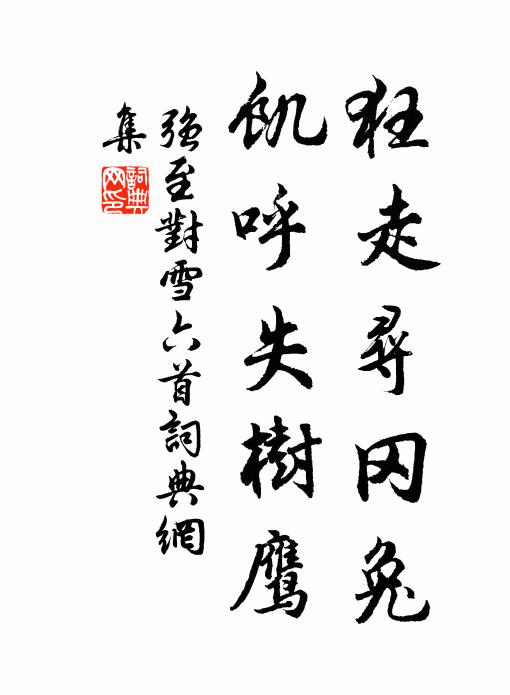 狂走尋冈兔
飢呼失樹鷹
強至對雪六首詞典網
集
詞典
网印